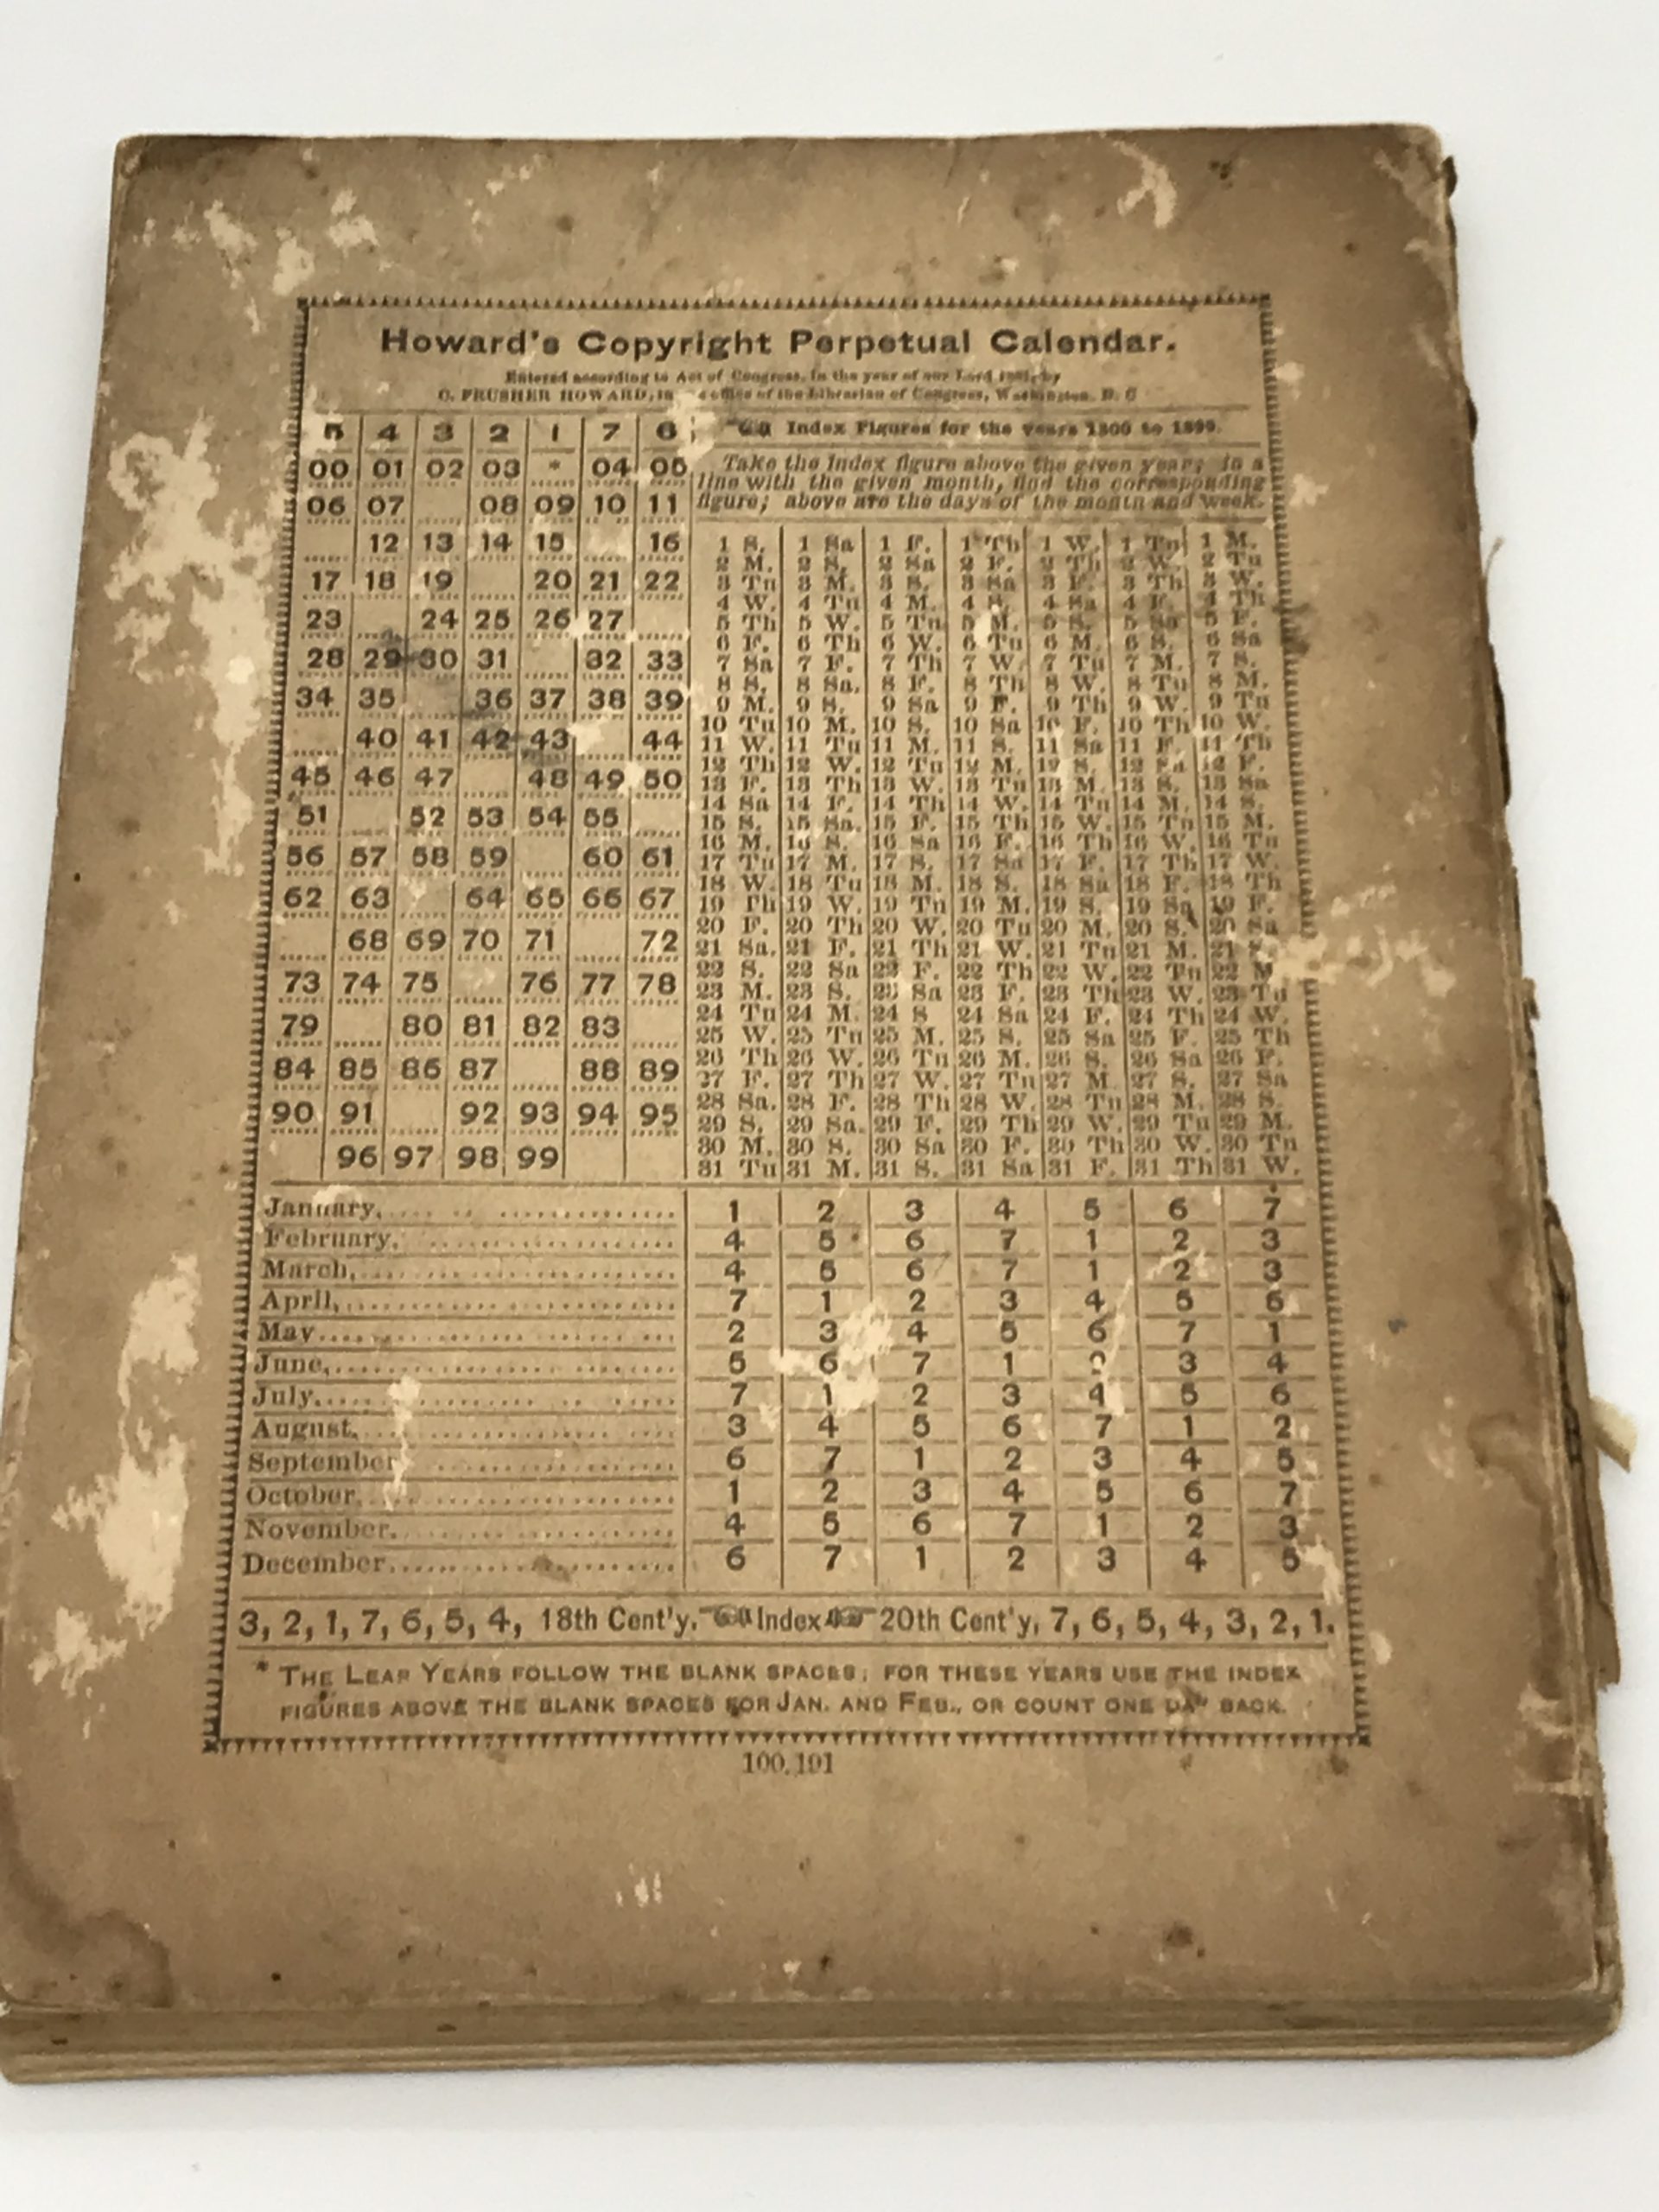 Howard's Copyright Perpetual Calendar.
Entered according to Act of Congress, in the year of our Lord by
C. FRUSHER HOWARD, in office of the Librarian of Congress, Washington, D. C
5 4 3 2 1 7 6
00 01 02 03 * 04 05
06 07 08 09 10 11
12 13 14 15 16
17 18 19 20 21 22
23 24 25 26 27
28 29 30 31 32 33
34 35 36 37 38 39
40 41 42 43 44
45 46 47 48 49 50
51 52 53 54 55
56 57 58 59 60 61
62 63 64 65 66 67
68 69 70 71 72
73 74 75 76 77 78
79 80 81 82 83
84 85 86 87 88 89
90 91 92 93 94 95
96 97 98 99
Index Figures for the years 1800 to 1899.
Take the Index figure above the given year; in a
line with the given month, find the corresponding
figure; above are the days of the month and week.
1 S. 1 Sa 1 F. 1 Th 1 W. 1 Tu 1 M.
2 M. 2 S. 2 Sa 2 F. 2 Th 2 W. 2 Tu
3 Tu 3 M. 3 S. 3 Sa 3 F. 3 Th 3 W.
4 W. 4 Tu 4 M. 4 S. 4 Sa 4 F. 4 Th
5 Th 5 W. 5 Tu 5 M. 5 S. 5 Sa 5 F.
6 F. 6 Th 6 W. 6 Tu 6 M. 6 S. 6 Sa
7 Sa 7 F. 7 Th 7 W. 7 Tu 7 M. 7 S.
8 S. 8 Sa. 8 F. 8 Th 8 W. 8 Tu 8 M.
9 M. 9 S. 9 Sa 9 F. 9 Th 9 W. 9 Tu
10 Tu 10 M. 10 S. 10 Sa 10 F. 10 Th 10 W.
11 W. 11 Tu 11 M. 11 S. 11 Sa 11 F. 11 Th
12 Th 12 W. 12 Tu 12 M. 12 S. 12 Sa 12 F.
13 F. 13 Th 13 W. 13 Tu 13 M. 13 S. 13 Sa
14 Sa 14 F. 14 Th 14 W. 14 Tu 14 M. 14 S.
15 S. 15 Sa. 15 F. 15 Th 15 W. 15 Tu 15 M.
16 M. 16 S. 16 Sa 16 F. 16 Th 16 W. 16 Tu
17 Tu 17 M. 17 S. 17 Sa 17 F. 17 Th 17 W.
18 W. 18 Tu 18 M. 18 S. 18 Sa 18 F. 18 Th
19 Th 19 W. 19 Tu 19 M. 19 S. 19 Sa 19 F.
20 F. 20 Th 20 W. 20 Tu 20 M. 20 S. 20 Sa
21 Sa. 21 F. 21 Th 21 W. 21 Tu 21 M. 21 S.
22 S. 22 Sa 22 F. 22 Th 22 W. 22 Tu 22 M
23 M. 23 S. 23 Sa 23 F. 23 Th 23 W. 23 Tu
24 Tu 24 M. 24 S 24 Sa 24 F. 24 Th 24 W.
25 W. 25 Tu 25 M. 25 S. 25 Sa 25 F. 25 Th
26 Th 26 W. 26 Tu 26 M. 26 S. 26 Sa 26 F.
27 F. 27 Th 27 W. 27 Tu 27 M 27 S. 27 Sa
28 Sa. 28 F. 28 Th 28 W. 28 Tu 28 M. 28 S.
29 S. 29 Sa. 29 F. 29 Th 29 W. 29 Tu 29 M.
30 M. 30 S. 30 Sa 30 F. 30 Th 30 W. 30 Tu
31 Tu 31 M. 31 S. 31 Sa 31 F. 31 Th 31 W.
January, 1 2 3 4 5 6 7
February, 4 5 6 7 1 2 3
March, 4 5 6 7 1 2 3
April, 7 1 2 3 4 5 6
May 2 3 4 5 6 7 1
June, 5 6 7 1 2 3 4
July, 7 1 2 3 4 5 6
August, 3 4 5 6 7 1 2
September 6 7 1 2 3 4 5
October, 1 2 3 4 5 6 7
November, 4 5 6 7 1 2 3
December 6 7 1 2 3 4 5
3, 2, 1, 7, 6, 5, 4, 18th Cent'y. Index 20th Cent'y, 7, 6, 5, 4, 3, 2, 1.
* THE LEAP YEARS FOLLOW THE BLANK SPACES; FOR THESE YEARS USE THE INDEX
FIGURES ABOVE THE BLANK SPACES FOR JAN. AND FEB., OR COUNT ONE DAY BACK.
100,191